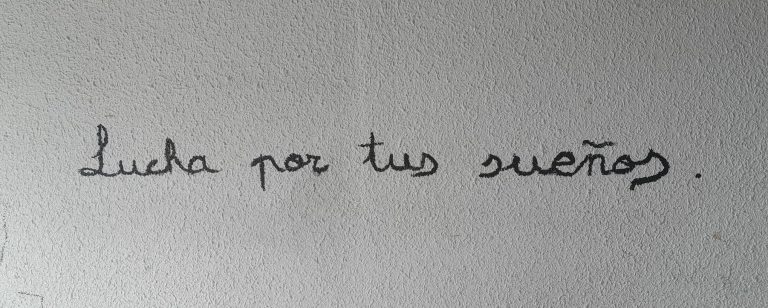 Lucha por tus sueños.